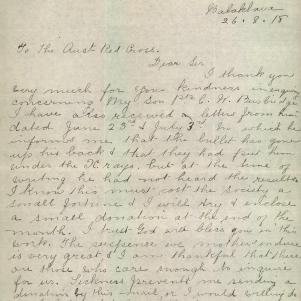 Balaklava
26.8.18
To The Aust Red Cross.
Dear Sir
I thank you
very much for your kindness in enquiry
concerning My Son Pte C. H. Burbidge
I have also received a letters from him
dated June 23rd & July 3rd In which he
informed me, that the bullet has gone
up his back & that they had put him
under the X rays, but at the time of
writing he had not heard the results
I know this must cost the Society a
small fortune & I will try & enclose
a small donation at the end of the
month. I trust God will bless you in this
work. The suspense we mothers endure
is very great & I am thankful that there
are those who care enough to inquire
for us. Sickness prevents me sending a
donation by this mail, or I would willingly do